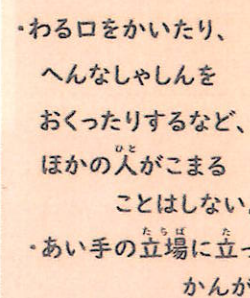 ・わる口をかいたり、
へんなしゃしんを
おくったりするなど、
ほかの人がこまる
ことはしない
・あい手の立場に立っ
かんが